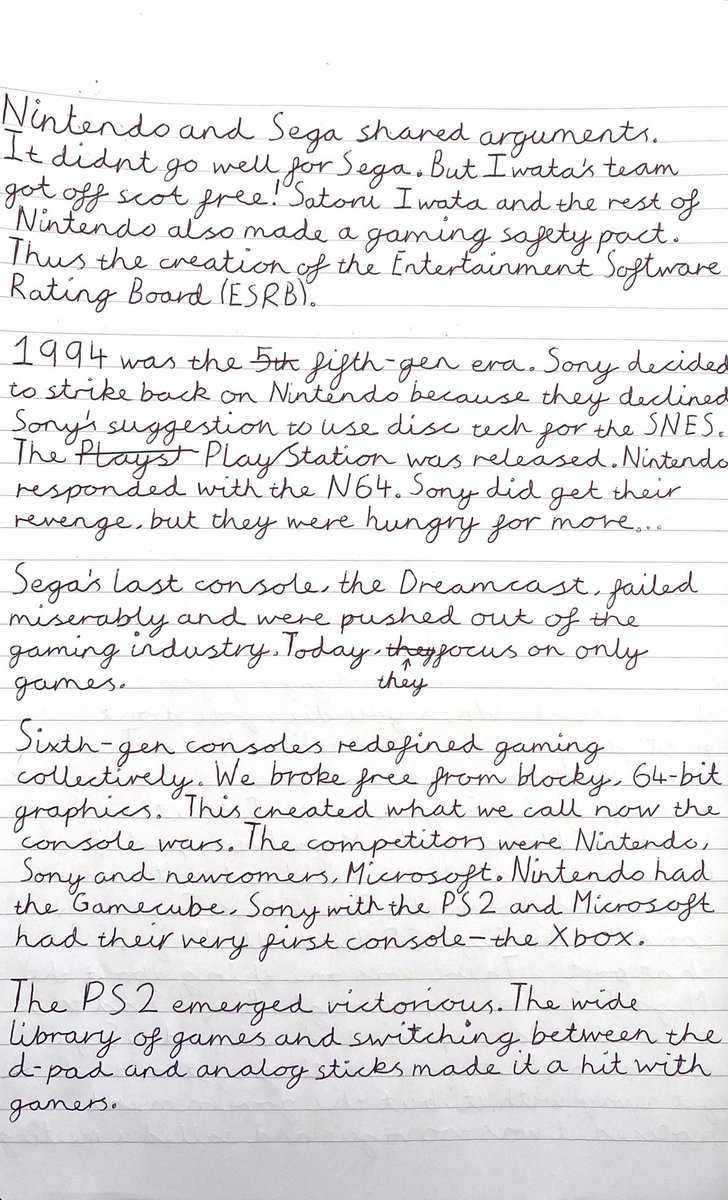 Nintendo and Sega shared arguments.
It didnt go well for Sega. But Iwata's team
got off scot free! Satoru Iwata and the rest of
Nintendo also made a gaming safety pact.
Thus the creation of the Entertainment Software
Rating Board (ESRB).
1994 was the 5th fifth-gen era. Sony decided
to strike back on Nintendo because they declined
Sony's suggestion to use disc tech for the SNES.
The Playst PlayStation was released. Nintendo
responded with the N64. Sony did get their
revenge, but they were hungry for more...
Sega's last console, the Dreamcast, failed
miserably and were pushed out of the
gaming industry. Today, they focus on only
games. they
Sixth-gen consoles redefined gaming
collectively. We broke free from blocky, 64-bit
graphics. This created what we call now the
console wars. The competitors were Nintendo,
Sony and newcomers, Microsoft. Nintendo had
the Gamecube, Sony with the PS2 and Microsoft
had their very first console - the Xbox.
The PS2 emerged victorious. The wide
library of games and switching between the
d-pad and analog sticks made it a hit with
gamers.